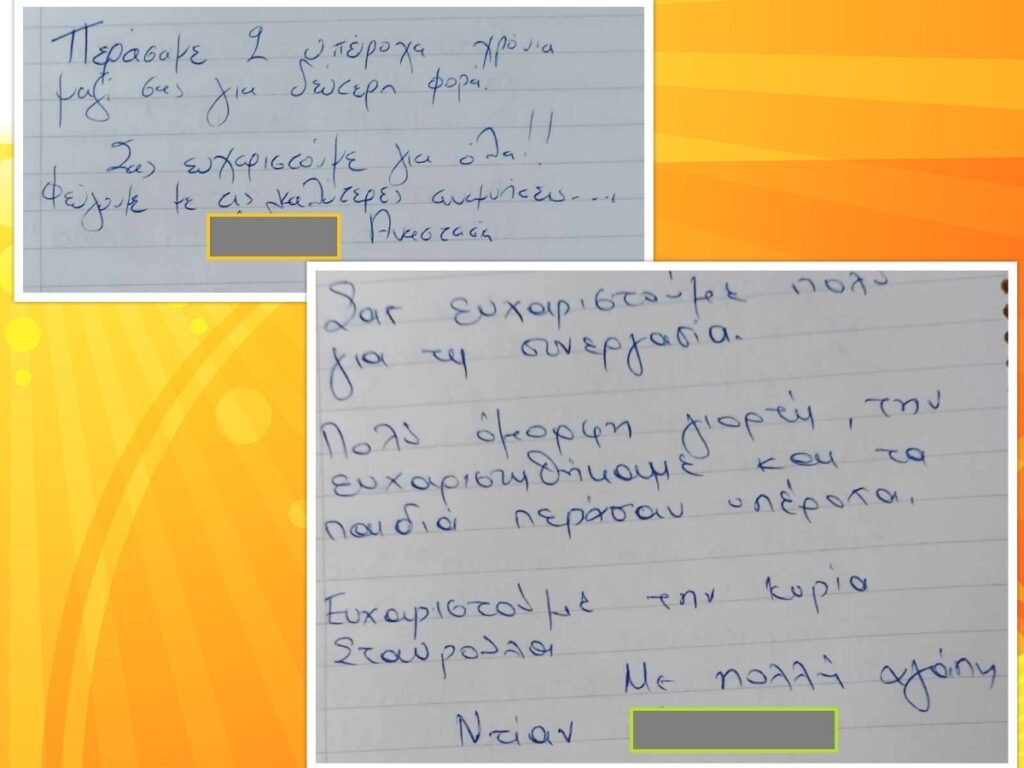 Περάσαμε 2 υπέροχα χρόνια
μαζί σας για δεύτερη φορά.
Σας ευχαριστούμε για όλα!!
Φεύγουμε με τις καλύτερες αναμνήσεις....
Αναστασία
Σας ευχαριστούμε πολύ
για τη συνεργασία.
Πολύ όμορφη γιορτή, την
ευχαριστηθήκαμε και τα
παιδιά περάσαν υπέροχα.
Ευχαριστούμε την κυρία
Σταυρούλα
Με πολλή αγάπη
Ντίαν